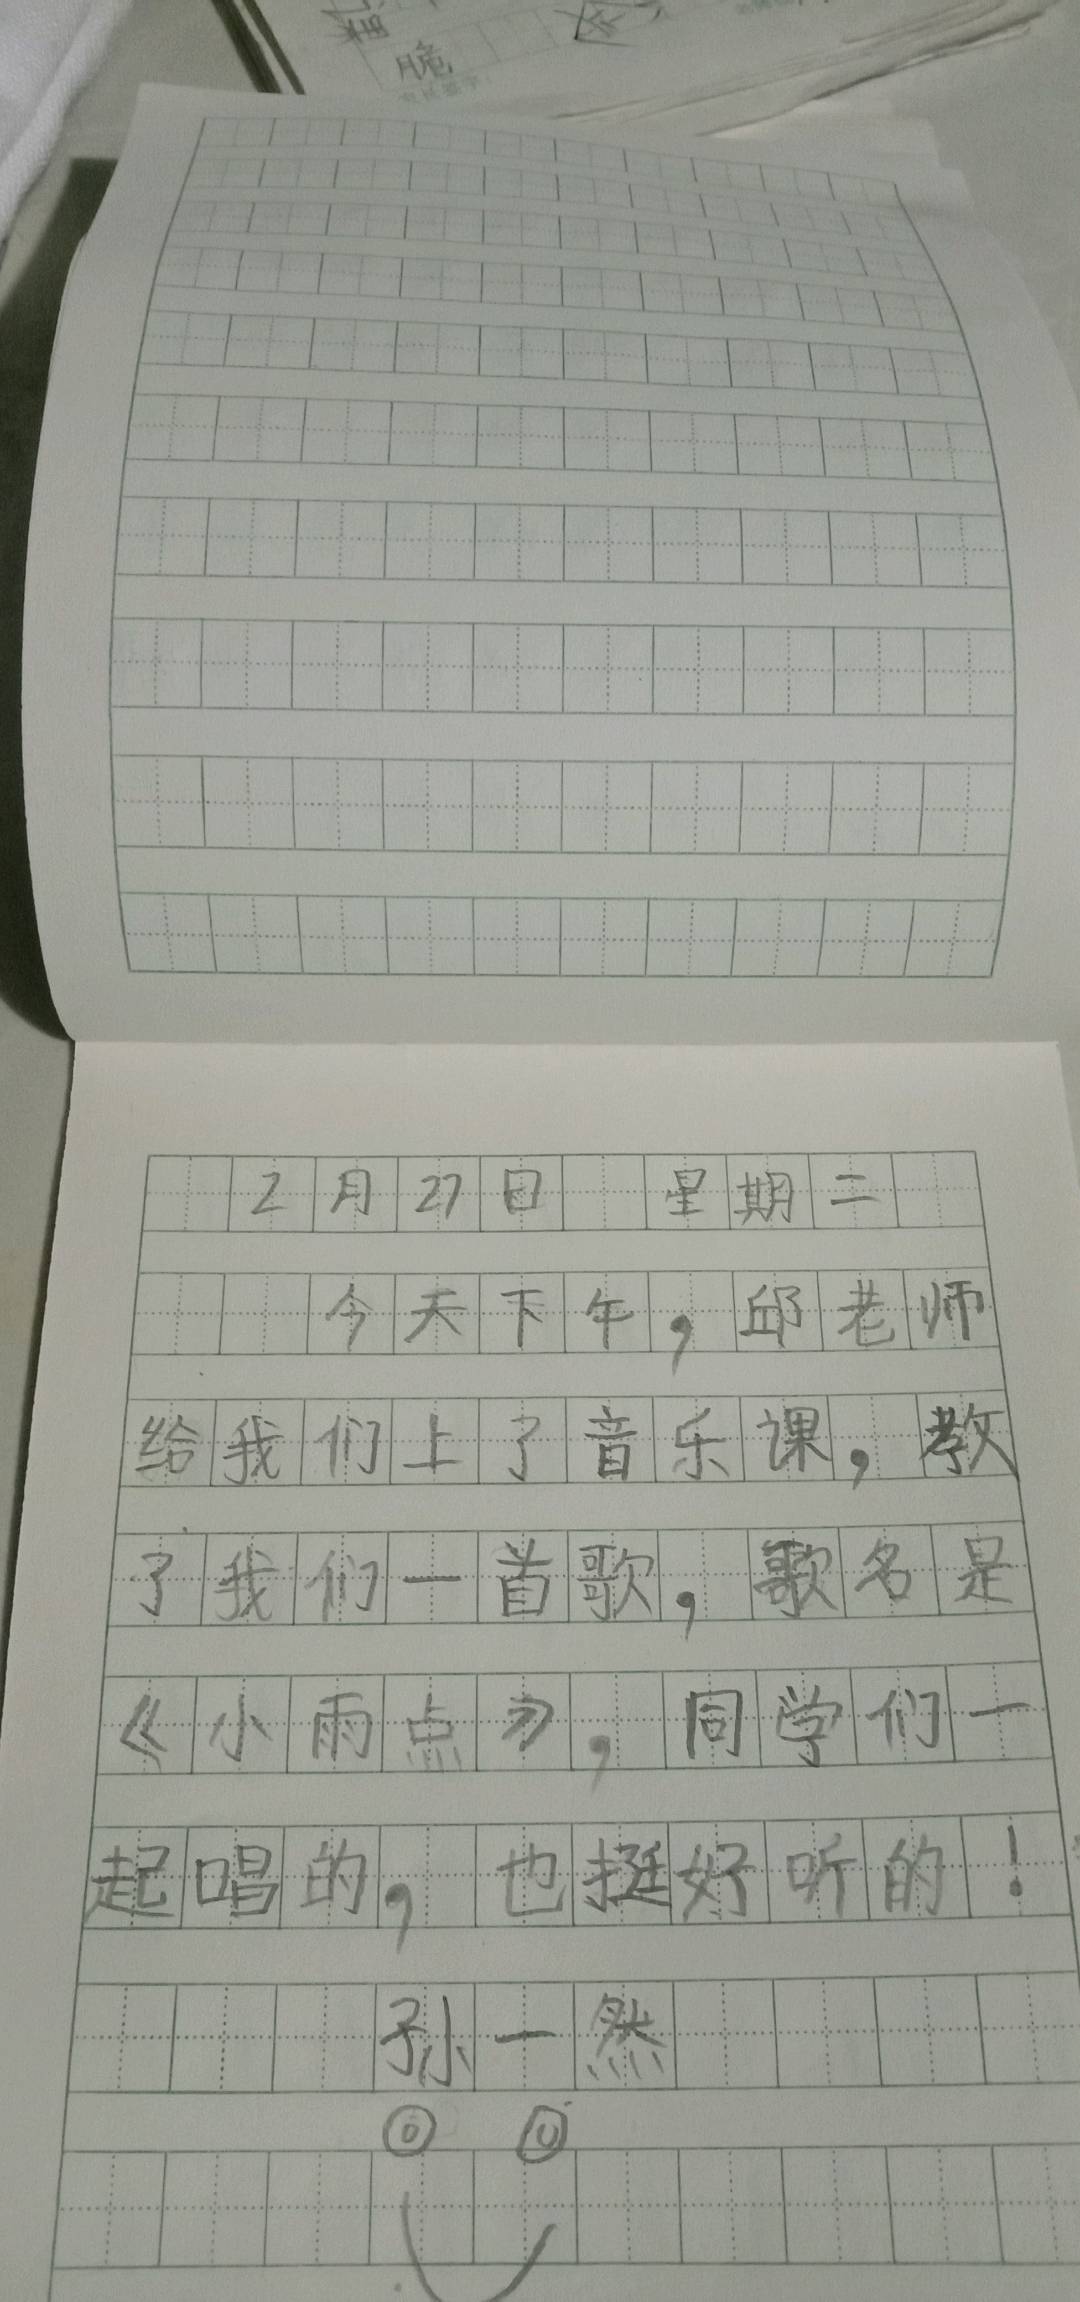 脆
2月27日 星期二
今天下午，邱老师
给我们上了音乐课，教
了我们一首歌，歌名是
《小雨点》，同学们一
起唱的，也挺好听的！
孙一然